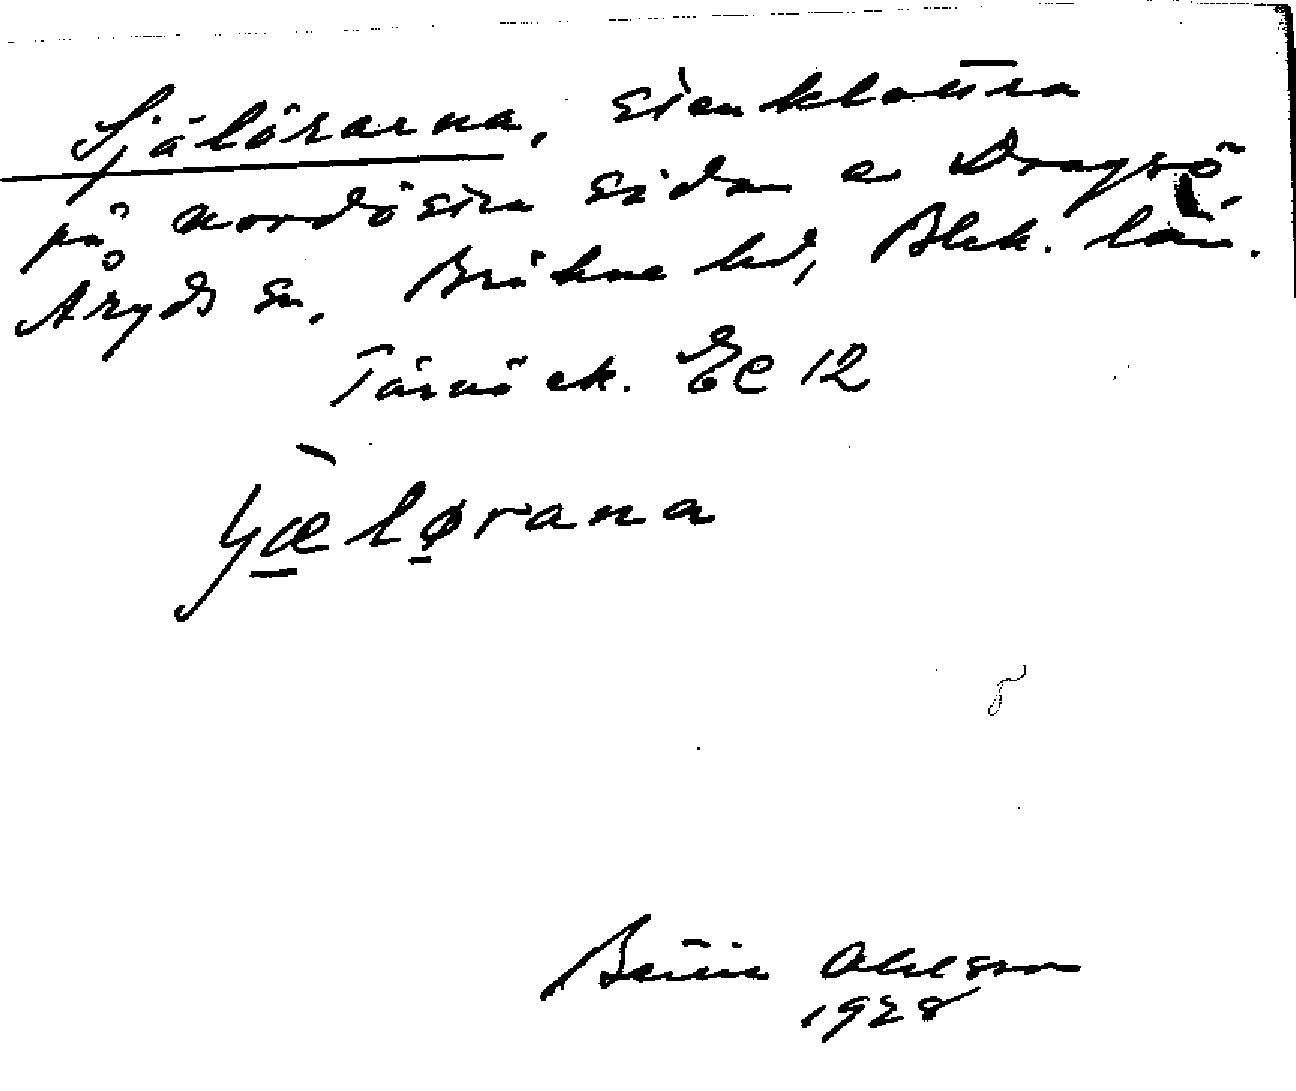 Själörarna, stenklottra
på nordöstra sidan av Dragsö,
Åryds sn. Bräkne hd, Blek. län.
Tärnö ek. EC 12
yælørana
Ohlsson
1928